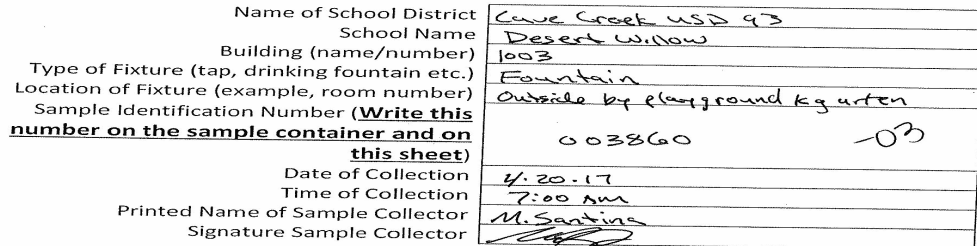 Name of School District Cave Creek USD 93
School Name Desert Willow
Building (name/number) 1003
Type of Fixture (tap, drinking fountain etc.) Fountain
Location of Fixture (example, room number) Outside by playground kg arten
Sample Identification Number (Write this
number on the sample container and on
this sheet) 003860 -03
Date of Collection 4.20.17
Time of Collection 7:00 AM
Printed Name of Sample Collector M. Santina
Signature Sample Collector